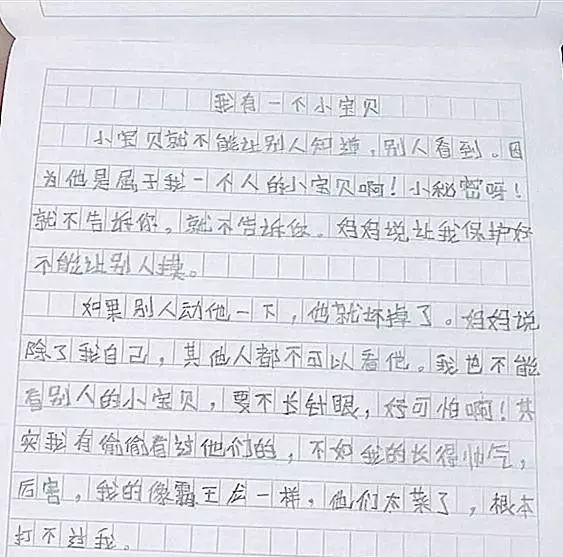 我有一个小宝贝
小宝贝就不能让别人知道，别人看到。因
为他是属于我一个人的小宝贝啊！小秘密吗！
就不告诉你。就不告诉你。妈妈说让我保护好
不能让别人摸。
如果别人动他一下，他就坏掉了。妈妈说
除了我自己，其他人都不可以看他。我也不能
看别人的小宝贝，要不长针眼，好可怕啊！其
实我有偷偷看过他们的，不如我的长得帅气，
厉害，我的像霸王龙一样，他们太菜了，根本
打不过我。